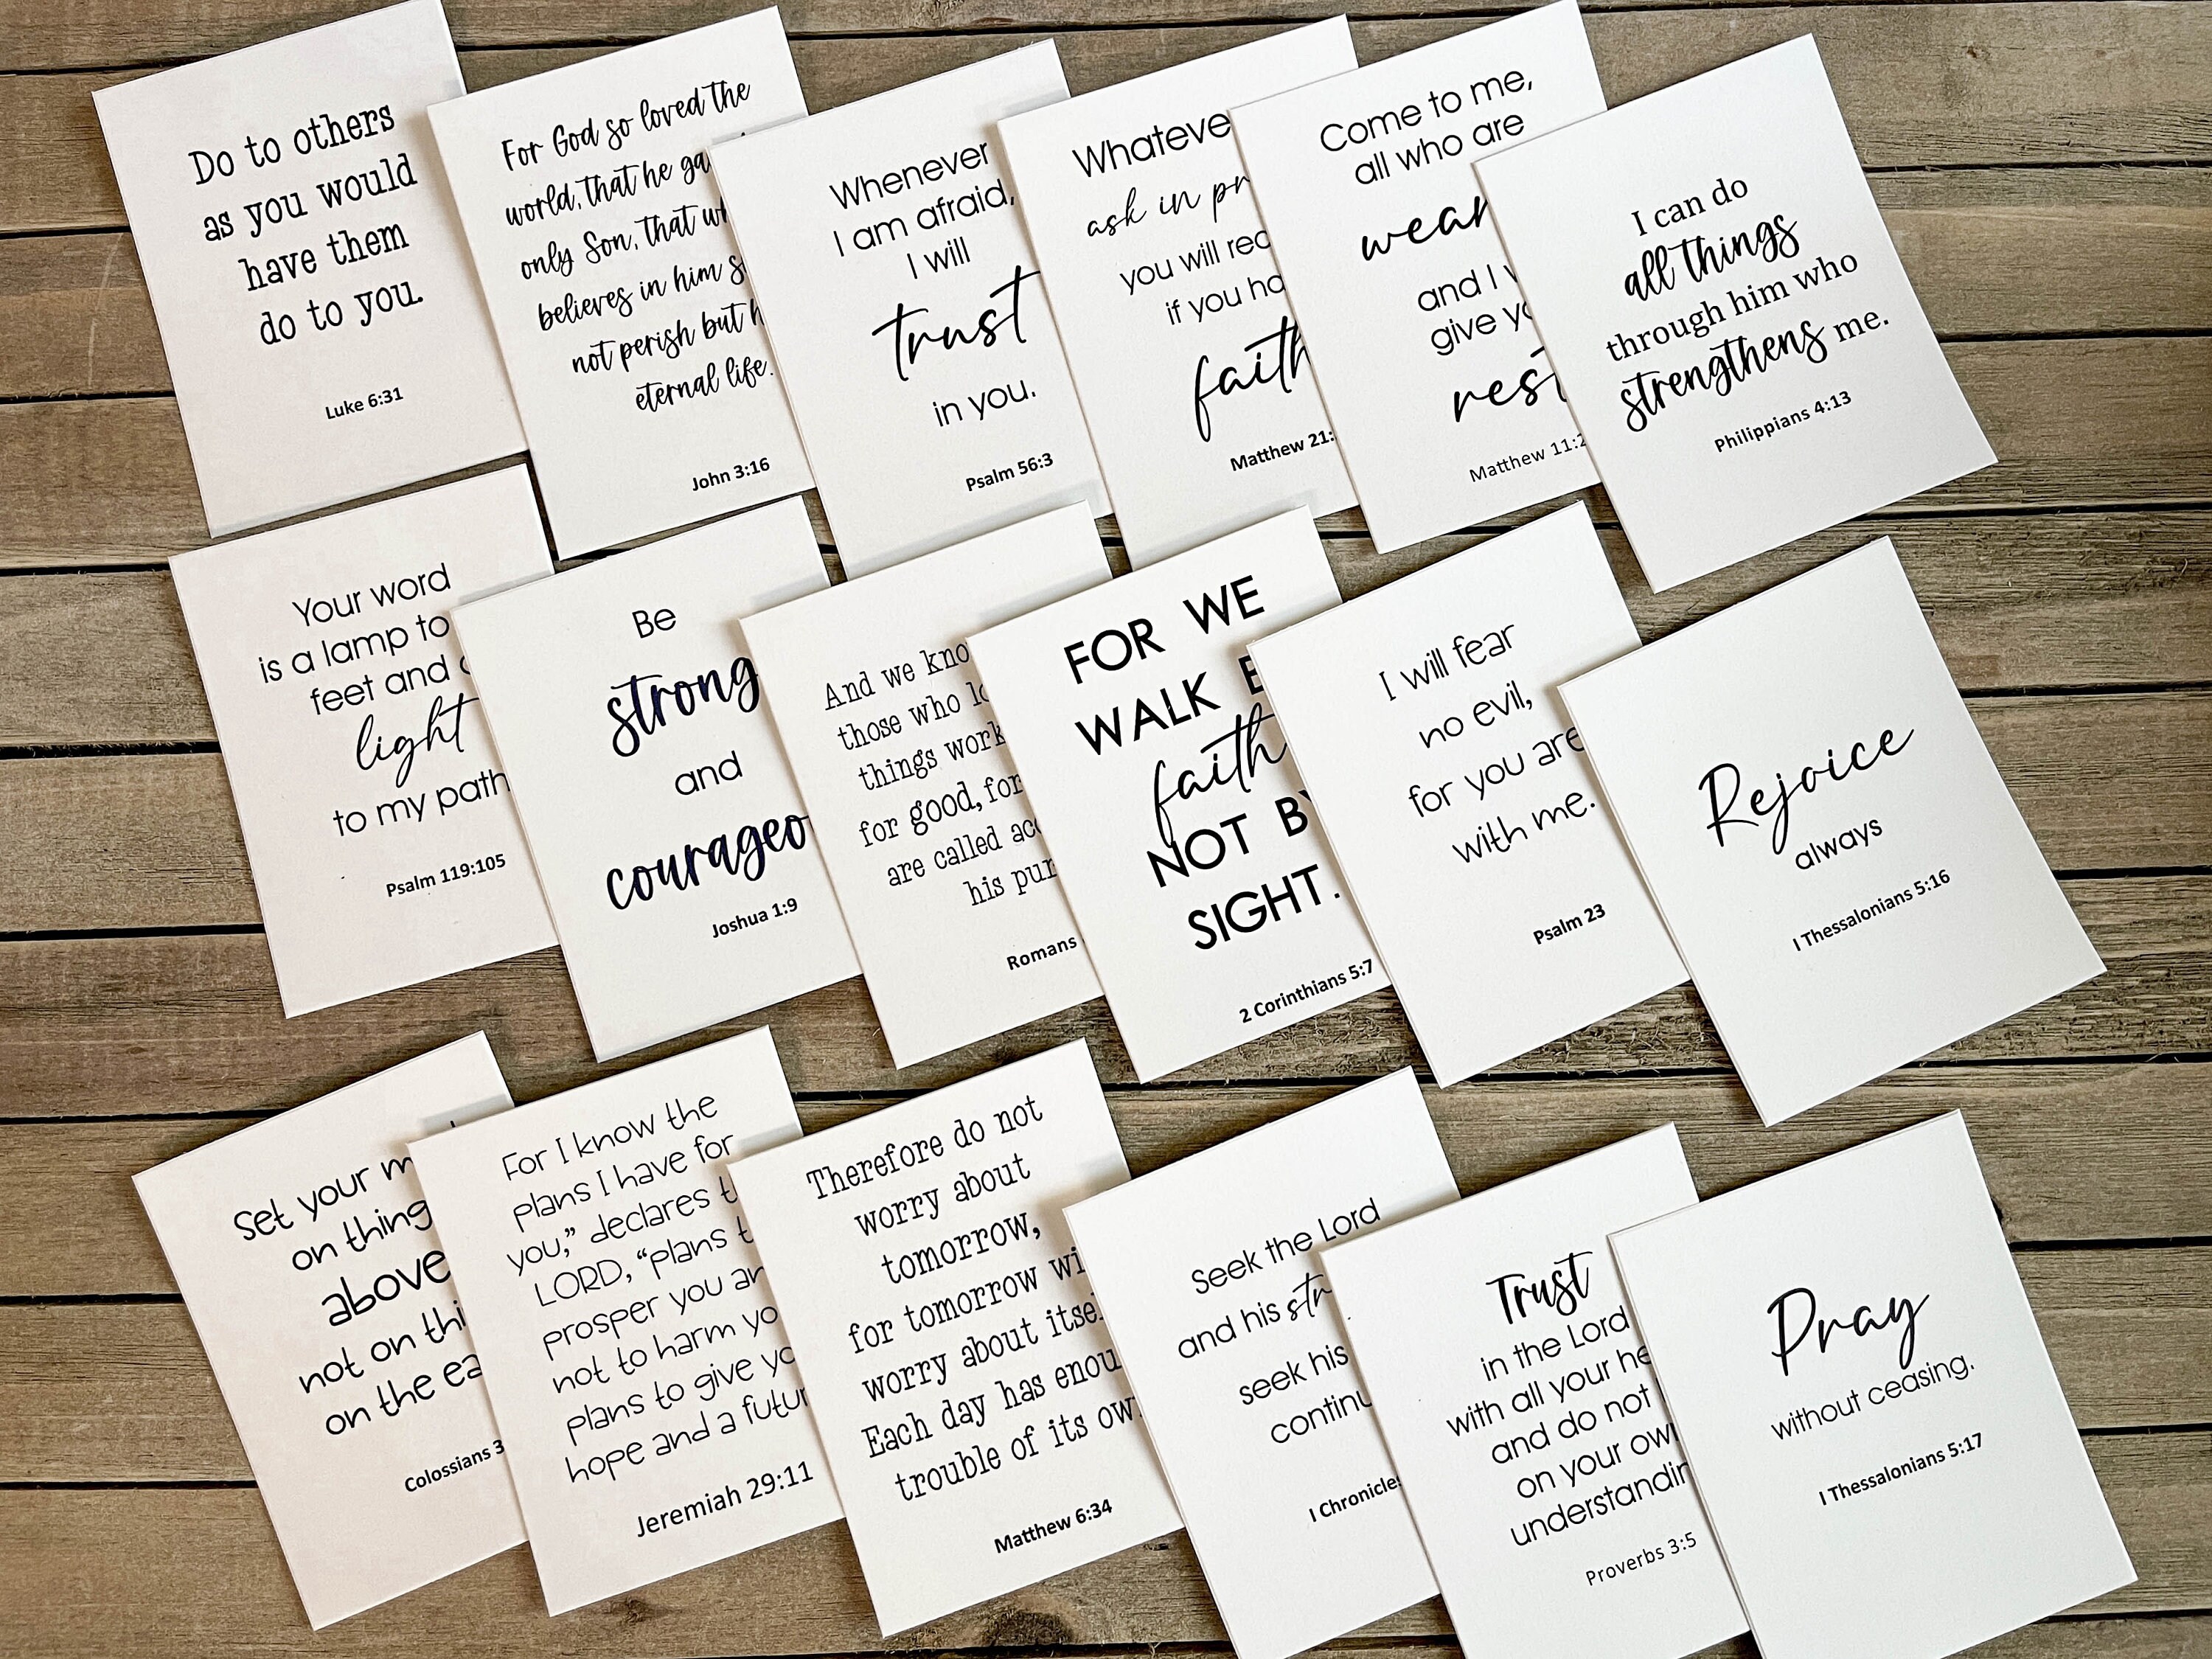 Do to others
as you would
have them
do to you.
Luke 6:31
For God so loved the
world, that he
only Son, that
believes in him
not perish but
eternal life.
John 3:16
Whenever
I am afraid,
I will
trust
in you.
Psalm 56:3
ask in
you will
if you
faith
Matthew
Come to me,
all who are
and I
give
rest
Matthew
I can do
all things
through him who
strengthens me.
Philippians 4:13
Your word
is a lamp to
feet and
light
to my path
Psalm 119:105
Be
strong
and
Joshua 1:9
And we
those who
things
for good, for
are called
his
Romans
FOR WE
WALK
faith
NOT BY
SIGHT.
2 Corinthians 5:7
I will fear
no evil,
for you are
with me.
Psalm 23
Rejoice
always
I Thessalonians 5:16
Set your
on
above
not on
on the
Colossians 3
For I know the
plans I have for
you,” declares
LORD, “plans
prosper you
not to harm
plans to give
hope and a
Jeremiah 29:11
Therefore do not
worry about
tomorrow,
for tomorrow
worry about
Each day has
trouble of its
Matthew 6:34
Seek the Lord
and his
seek his
I
Trust
in the Lord
with all your
and do not
on your
Proverbs 3:5
Pray
without ceasing.
I Thessalonians 5:17